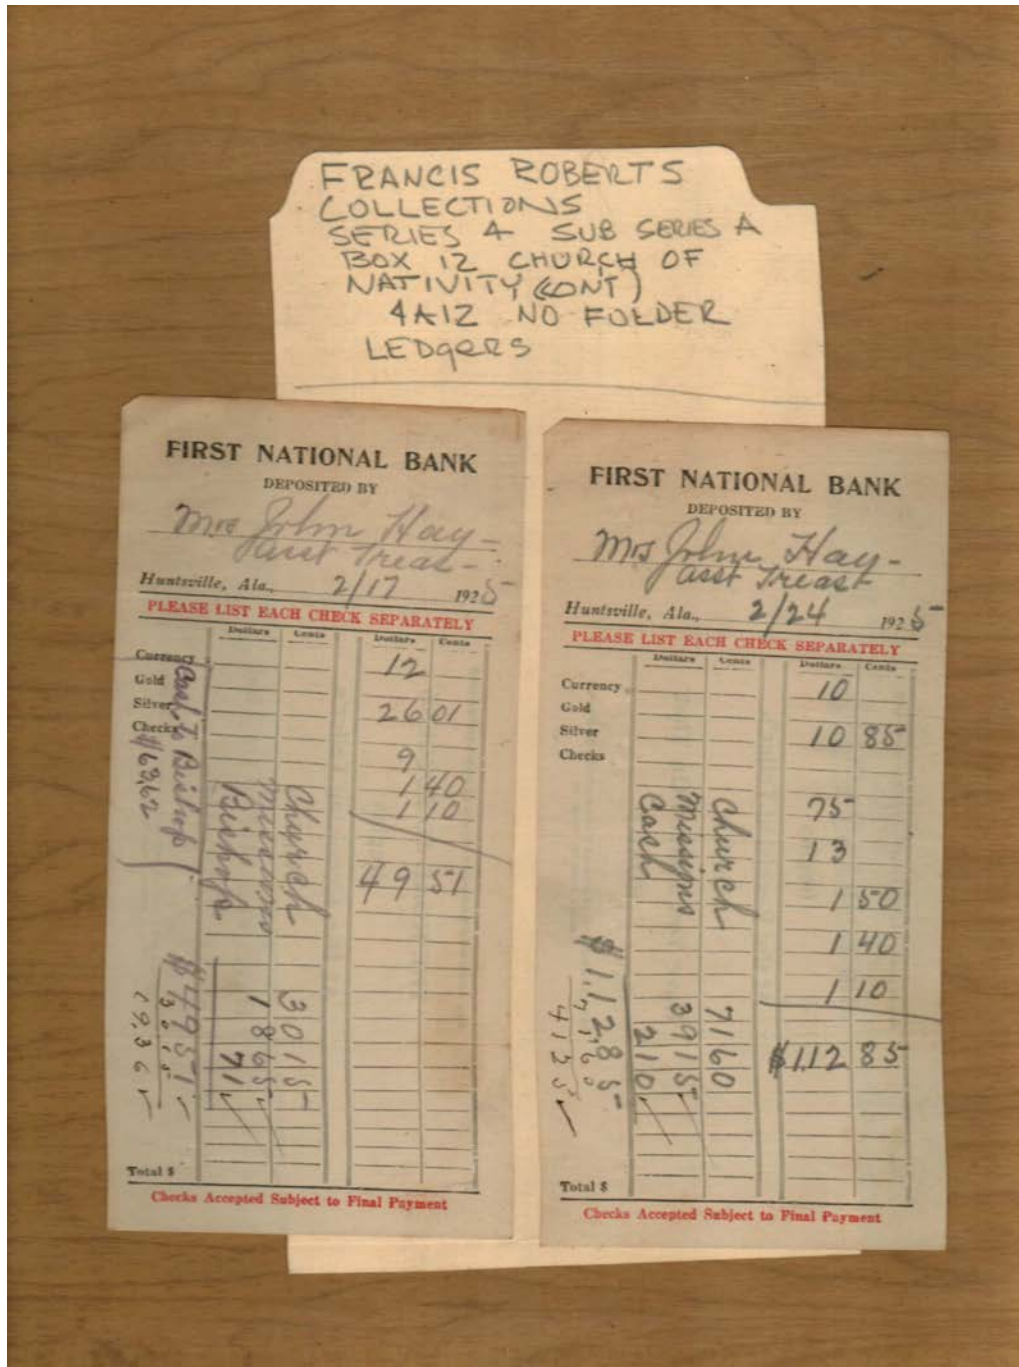 FRANCIS ROBERTS
COLLECTIONS
SERIES 4 SUB SERIES A
BOX 12 CHURCH OF
NATIVITY (CONT)
4A12 NO FOLDER
LEDgERS
FIRST NATIONAL BANK
DEPOSITED BY
Mrs John Hay-
asst Treas-
Huntsville, Ala., 2/17 1925
PLEASE LIST EACH CHECK SEPARATELY
Dollars Cents Dollars Cents
Currency 12
Gold
Silver 26 01
Checks
9
1 40
1 10
49 51
Cash to Bishop
$63.62
Church 30 15
Missions 18 65
Bishop 71
$49 51
30 15
19.36
Total $
Checks Accepted Subject to Final Payment
FIRST NATIONAL BANK
DEPOSITED BY
Mrs John Hay-
asst Treast
Huntsville, Ala., 2/24 1925
PLEASE LIST EACH CHECK SEPARATELY
Dollars Cents Dollars Cents
Currency 10
Gold
Silver 10 85
Checks
75
13
1 50
1 40
1 10
$112 85
Church 71 60
Missions 39 15
Cash 2 10
$112 85
71 60
41 25
Total $
Checks Accepted Subject to Final Payment